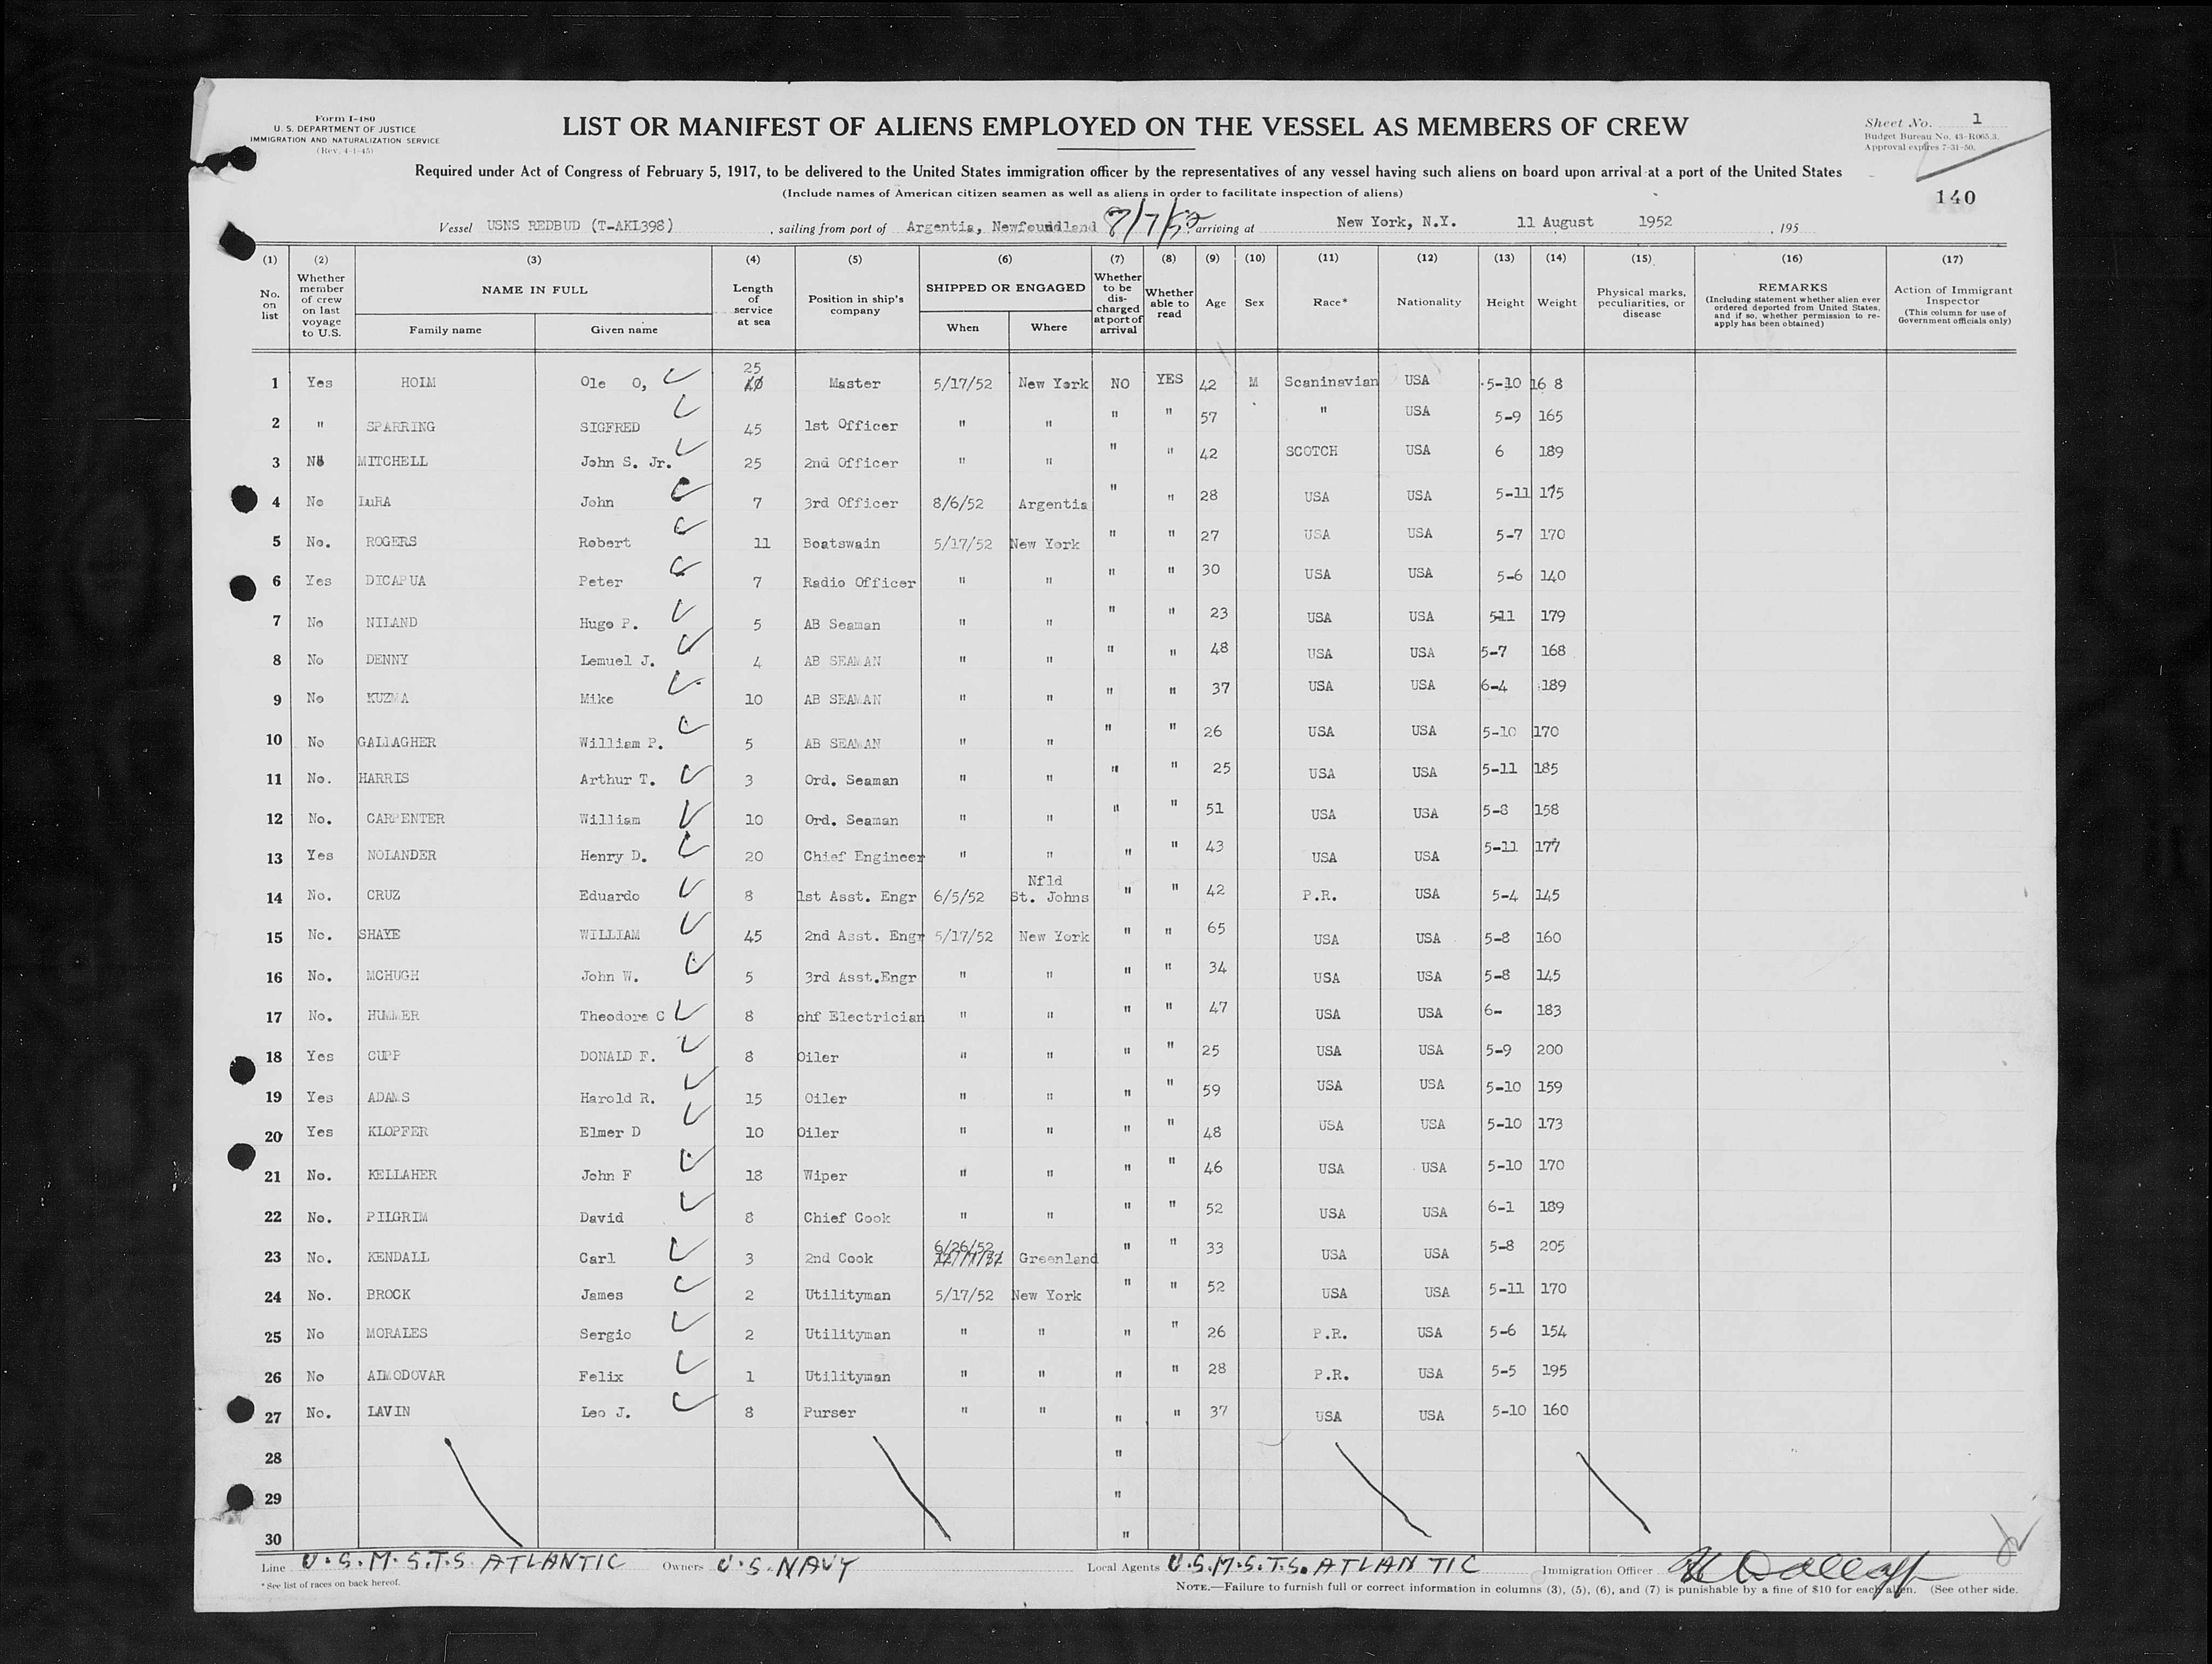 Form I-480
U. S. DEPARTMENT OF JUSTICE
IMMIGRATION AND NATURALIZATION SERVICE
(Rev. 4-1-45)
LIST OR MANIFEST OF ALIENS EMPLOYED ON THE VESSEL AS MEMBERS OF CREW
Sheet No. 1
Budget Bureau No. 43-R065.3.
Approval expires 7-31-50.
Required under Act of Congress of February 5, 1917, to be delivered to the United States immigration officer by the representatives of any vessel having such aliens on board upon arrival at a port of the United States
(Include names of American citizen seamen as well as aliens in order to facilitate inspection of aliens)
140
Vessel USNS REDBUD (T-AKL398) , sailing from port of Argentia, Newfoundland 8/7/52 arriving at New York, N.Y. 11 August 1952 , 195
(1) No. on list (2) Whether member of crew on last voyage to U.S. (3) NAME IN FULL Family name Given name (4) Length of service at sea (5) Position in ship's company (6) SHIPPED OR ENGAGED When Where (7) Whether to be discharged at port of arrival (8) Whether able to read (9) Age (10) Sex (11) Race* (12) Nationality (13) Height (14) Weight (15) Physical marks, peculiarities, or disease (16) REMARKS (Including statement whether alien ever ordered deported from United States, and if so, whether permission to reapply has been obtained) (17) Action of Immigrant Inspector (This column for use of Government officials only)
1 Yes HOIM Ole O, 25 40 Master 5/17/52 New York NO YES 42 M Scaninavian USA 5-10 16 8
2 " SPARRING SIGFRED 45 1st Officer " " " " 57 " USA 5-9 165
3 No MITCHELL John S. Jr. 25 2nd Officer " " " " 42 SCOTCH USA 6 189
4 No LuRA John 7 3rd Officer 8/6/52 Argentia " " 28 USA USA 5-11 175
5 No. ROGERS Robert 11 Boatswain 5/17/52 New York " " 27 USA USA 5-7 170
6 Yes DICAPUA Peter 7 Radio Officer " " " " 30 USA USA 5-6 140
7 No NILAND Hugo P. 5 AB Seaman " " " " 23 USA USA 5-11 179
8 No DENNY Lemuel J. 4 AB SEAMAN " " " " 48 USA USA 5-7 168
9 No KUZMA Mike 10 AB SEAMAN " " " " 37 USA USA 6-4 189
10 No GALLAGHER William P. 5 AB SEAMAN " " " " 26 USA USA 5-10 170
11 No. HARRIS Arthur T. 3 Ord. Seaman " " " " 25 USA USA 5-11 185
12 No. CARPENTER William 10 Ord. Seaman " " " " 51 USA USA 5-8 158
13 Yes NOLANDER Henry D. 20 Chief Engineer " " " " 43 USA USA 5-11 177
14 No. CRUZ Eduardo 8 1st Asst. Engr 6/5/52 Nfld St. Johns " " 42 P.R. USA 5-4 145
15 No. SHAYE WILLIAM 45 2nd Asst. Engr 5/17/52 New York " " 65 USA USA 5-8 160
16 No. MCHUGH John W. 5 3rd Asst.Engr " " " " 34 USA USA 5-8 145
17 No. HUMMER Theodore C 8 chf Electrician " " " " 47 USA USA 6- 183
18 Yes CUPP DONALD F. 8 Oiler " " " " 25 USA USA 5-9 200
19 Yes ADAMS Harold R. 15 Oiler " " " " 59 USA USA 5-10 159
20 Yes KLOPFER Elmer D 10 Oiler " " " " 48 USA USA 5-10 173
21 No. KELLAHER John F 18 Wiper " " " " 46 USA USA 5-10 170
22 No. PILGRIM David 8 Chief Cook " " " " 52 USA USA 6-1 189
23 No. KENDALL Carl 3 2nd Cook 6/26/52 Greenland " " 33 USA USA 5-8 205
24 No. BROCK James 2 Utilityman 5/17/52 New York " " 52 USA USA 5-11 170
25 No MORALES Sergio 2 Utilityman " " " " 26 P.R. USA 5-6 154
26 No ALMODOVAR Felix 1 Utilityman " " " " 28 P.R. USA 5-5 195
27 No. LAVIN Leo J. 8 Purser " " " " 37 USA USA 5-10 160
28 "
29 "
30 "
Line U.S.M.S.T.S. ATLANTIC Owners U.S. NAVY Local Agents U.S.M.S.T.S. ATLANTIC Immigration Officer
* See list of races on back hereof.
NOTE.—Failure to furnish full or correct information in columns (3), (5), (6), and (7) is punishable by a fine of $10 for each alien. (See other side.